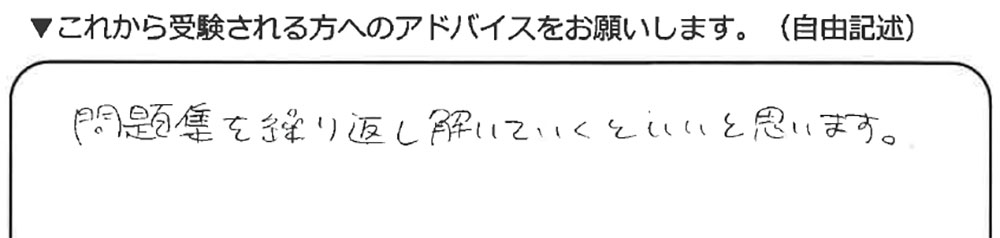 ▼これから受験される方へのアドバイスをお願いします。（自由記述）
問題集を繰り返し解いていくといいと思います。